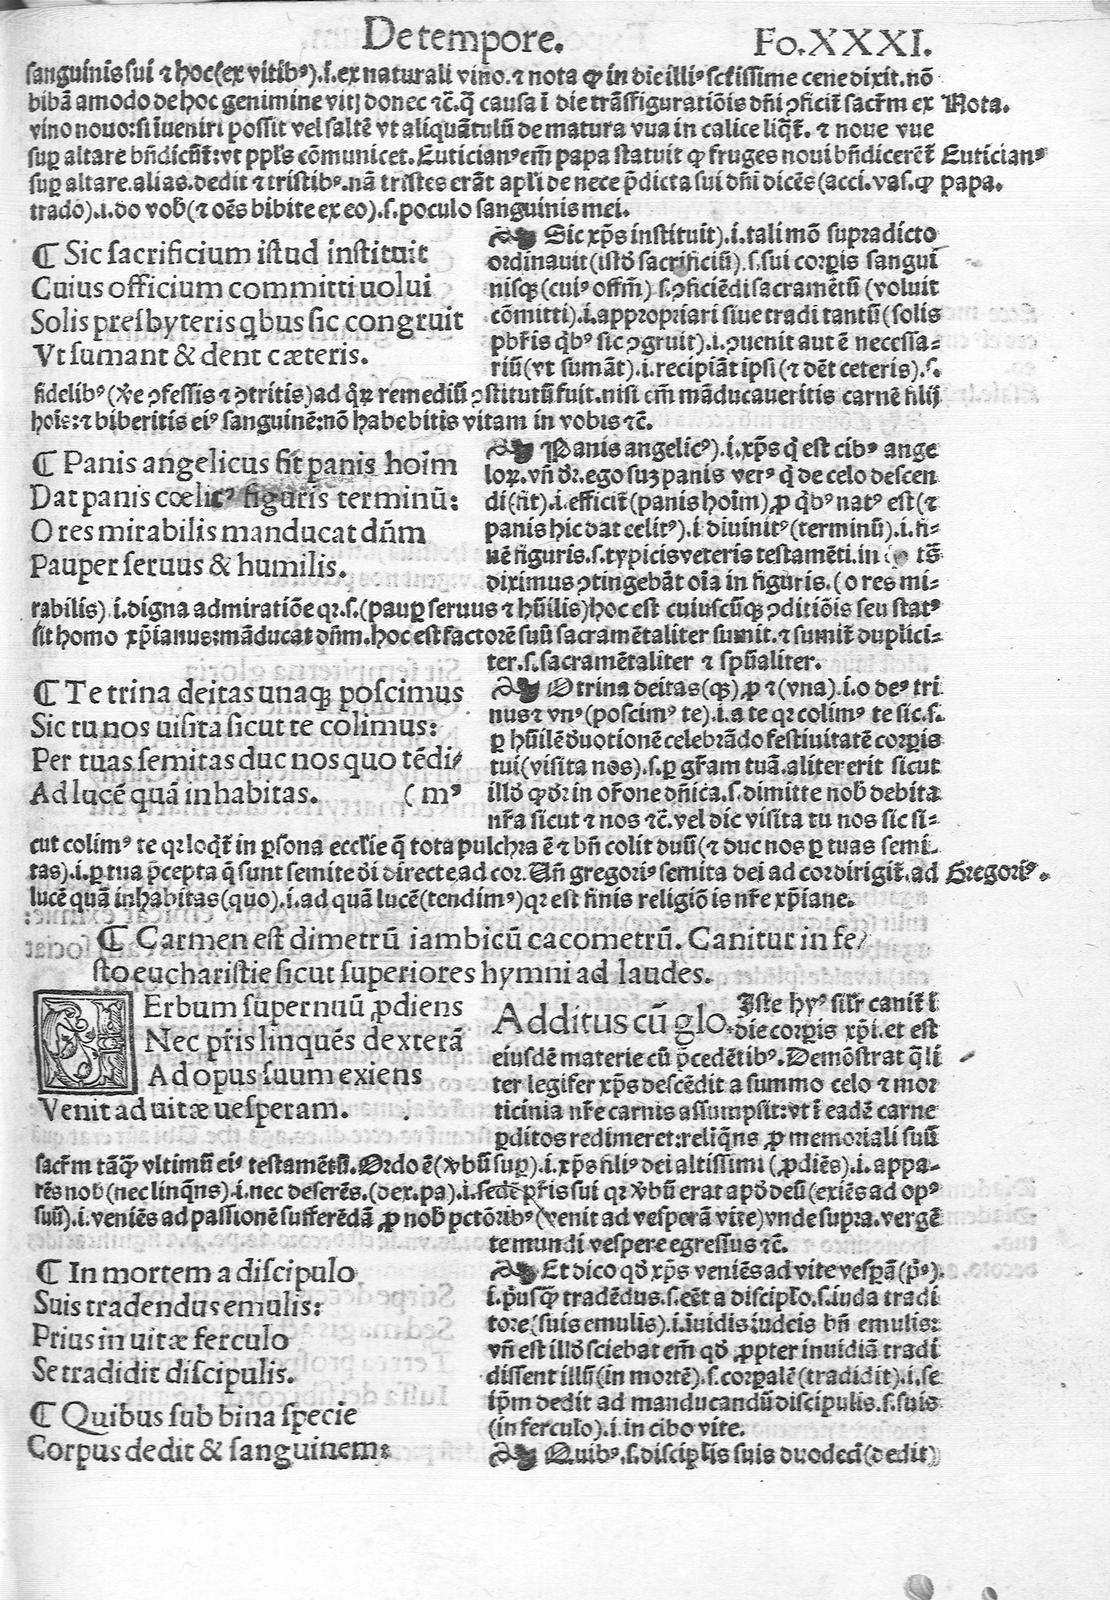 De tempore. Fo.XXXI.
sanguinis sui ⁊ hoc(ex vitibꝰ).i.ex naturali vino.⁊ nota ꝙ in die illiꝰ sctissime cene dixit.nō
bibā amodo de hoc genimine vitꝭ donec ⁊c̄.q̄ causa ī die trāsfiguratiōis dn̄i ↄficit̄ sacr̄m ex Nota.
vino nouo:si īueniri possit vel saltē vt aliquātulū de matura vua in calice liq̄t̄. ⁊ noue vue
suꝑ altare bn̄dicūt̄:vt ppl̄s cōmunicet. Euticianꝰ em̄ papa statuit ꝙ fruges noui bn̄dicerēt̄ Euticianꝰ
suꝑ altare.alias.dedit ⁊ tristibꝰ.nā tristes erāt apl̄i de nece p̄dicta sui dn̄i dicēs(acci.vas.ꝙ papa.
trado).i.do vob̄(⁊ oēs bibite ex eo).s.poculo sanguinis mei.
¶ Sic sacrificium istud instituit
Cuius officium committi uolui
Solis presbyteris qbus sic congruit
Vt sumant & dent cæteris.
Sic xp̄s instituit).i.tali mō supradicto
ordinauit(istō sacrificiū).s.sui corꝑis sangui
nisqꝫ(cuiꝰ offm̄) s.ↄficiēdi sacramētū (voluit
cōmitti).i.appropriari siue tradi tantū(solis
pbr̄is qb̄ꝰ sic ↄgruit).i.ↄuenit aut ē necessa-
riū(vt sumāt).i.recipiāt ipsi(⁊ dēt ceteris).s.
fidelibꝰ(v̄e ↄfessis ⁊ ↄtritis)ad qꝝ remediū ↄstitutū fuit.nisi em̄ māducaueritis carnē filij
hoīs:⁊ biberitis eiꝰ sanguinē:nō habebitis vitam in vobis ⁊c̄.
¶ Panis angelicus fit panis hoīm
Dat panis cœlitꝰ figuris terminū:
O res mirabilis manducat dn̄m
Pauper seruus & humilis.
Panis angelicꝰ).i.xp̄s q̄ est cibꝰ ange
loꝝ.vn̄ dr̄.ego suꝫ panis verꝰ q̄ de celo descen
di(fit).i.efficit̄(panis hoīm)ꝓ qb̄ꝰ natꝰ est(⁊
panis hic dat celitꝰ).i diuinitꝰ(terminū).i.fi-
nē figuris.s.typicis veteris testamēti.in tm̄
diximus ↄtingebāt oīa in figuris.(o res mi-
rabilis).i.digna admiratiōe qr.s.(pauꝑ seruus ⁊ hūilis)hoc est cuiuscūqꝫ ↄditiōis seu statꝰ
sit homo xp̄ianus:māducat dn̄m.hoc est factorē suū sacramētaliter sumit.⁊ sumit̄ duplici-
ter.s.sacramētaliter ⁊ spūaliter.
¶ Te trina deitas unaqꝫ poscimus
Sic tu nos uisita sicut te colimus:
Per tuas semitas duc nos quo tēdi/
Ad lucē quā inhabitas. ( mꝰ
O trina deitas(qꝫ)ꝓ ⁊(vna).i.o deꝰ tri
nus ⁊ vnꝰ(poscimꝰ te).i.a te qr colimꝰ te sic.s.
ꝑ hūilē ꝺuotionē celebrādo festiuitatē corꝑis
tui(visita nos).s.ꝑ gr̄am tuā.aliter erit sicut
illō ꝙ dr̄ in or̄one dn̄ica.s.dimitte nob̄ debita
nr̄a sicut ⁊ nos ⁊c̄.vel dic visita tu nos sic si-
cut colimꝰ te qr loq̄t̄ in ꝑsona eccl̄ie q̄ tota pulchra ē ⁊ bn̄ colit duū(⁊ duc nos ꝑ tuas semi-
tas).i.ꝑ tua p̄cepta q̄ sunt semite dei directe ad cor.Un̄ gregoriꝰ semita dei ad cor dirigit̄.ad Gregoriꝰ.
lucē quā inhabitas(quo).i.ad quā lucē(tendimꝰ)qr est finis religiōis nr̄e xp̄iane.
¶ Carmen est dimetrū iambicū cacometrū. Canitur in fe/
sto eucharistie sicut superiores hymni ad laudes.
VErbum supernuū ꝓdiens
Nec pr̄is linquēs dexterā
Ad opus suum exiens
Venit ad uitæ uesperam.
Additus cū glo. Iste hyꝰ silr̄ canit̄ ī
die corꝑis xp̄i.et est
eiusdē materie cū p̄cedētibꝰ.Demōstrat q̄li
ter legifer xp̄s descēdit a summo celo ⁊ mor
ticinia nr̄e carnis assumpsit:vt ī eadē carne
ꝑditos redimeret:reliq̄ns ꝓ memoriali suū
sacr̄m tāqꝫ vltimū eiꝰ testamētū.Ordo ē(v̄bū suꝑ).i.xp̄s filiꝰ dei altissimi(ꝓdiēs).i.appa-
rēs nob̄(nec linquēs).i.nec deserēs.(dex.pa).i.sedē pr̄is sui qr v̄bū erat apd̄ deū(exiēs ad opꝰ
suū).i.veniēs ad passionē sufferēdā ꝓ nob̄ pctōribꝰ(venit ad vesperā vite)vnde supra.vergē
te mundi vespere egressus ⁊c̄.
¶ In mortem a discipulo
Suis tradendus emulis:
Prius in uitæ ferculo
Se tradidit discipulis.
¶ Quibus sub bina specie
Corpus dedit & sanguinem:
Et dico qd̄ xp̄s veniēs ad vite vesꝑā(pꝰ).
i.pꝰusqꝫ tradēdus.s.eēt a discipl̄o.s.iuda tradi
tore(suis emulis).i.īuidis iudeis bn̄ emulis:
vn̄ est illō sciebat em̄ qd̄ ꝓpter inuidiā tradi
dissent illū(in mortē).s.corꝑalē(tradidit).i.se
ip̄m dedit ad manducandū discipulis.s.suis
(in ferculo).i.in cibo vite.
Quibꝰ.s.discipl̄is suis duodecī(dedit)